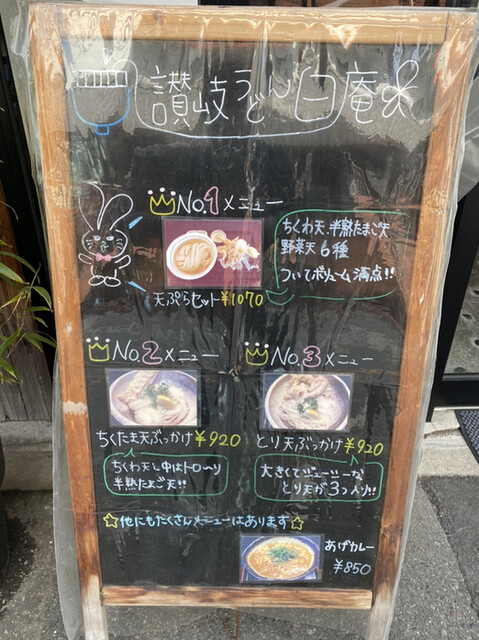 讃岐うどん白庵
No.1メニュー
ちくわ天、半熟たまご天
野菜天6種
ついてボリューム満点!!
天ぷらセット¥1070
No.2メニュー
No.3メニュー
ちくたま天ぶっかけ¥920
とり天ぶっかけ¥920
ちくわ天と中はトロ〜リ
半熟たまご天!!
大きくてジューシーな
とり天が3つ入り!!
☆他にもたくさんメニューはあります☆
あげカレー
¥850